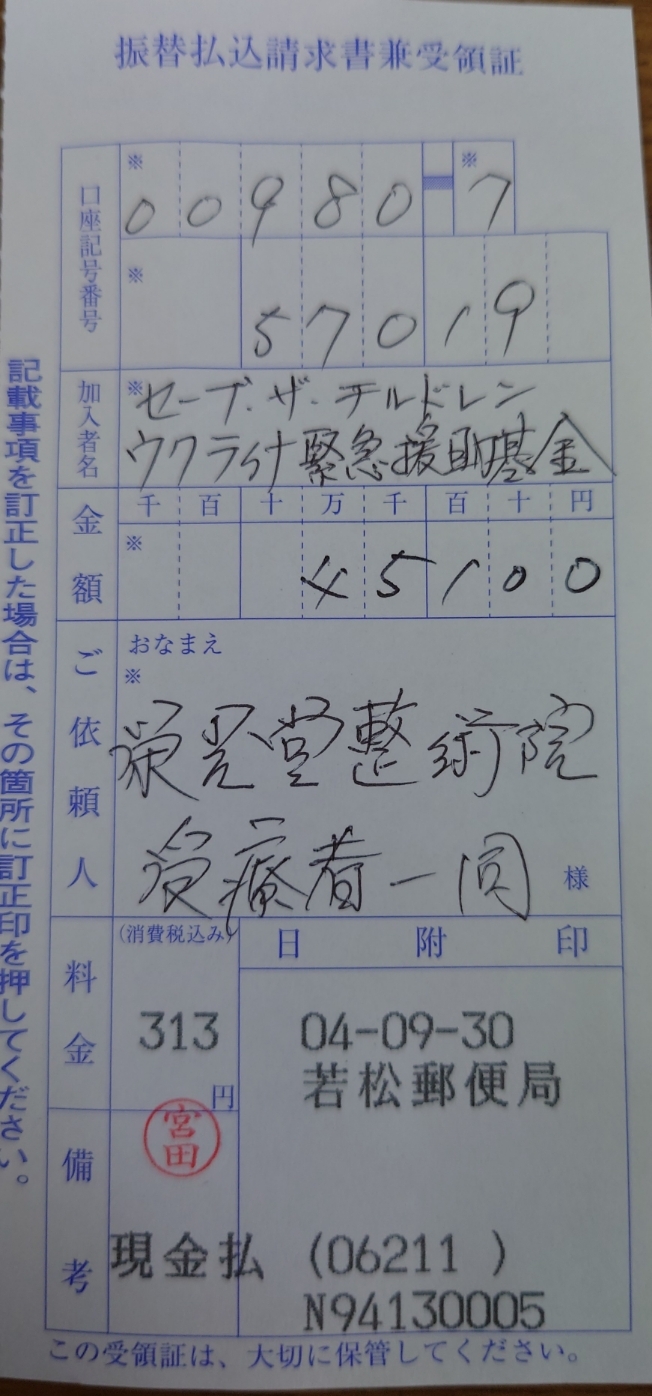 振替払込請求書兼受領証
口座記号番号
※ ※
00980-7
※
57019
加入者名
※セーブ・ザ・チルドレン
ウクライナ緊急援助基金
金額
千 百 十 万 千 百 十 円
※
45100
ご依頼人
おなまえ
※
栄光堂整術院
受療者一同 様
料金
(消費税込み)
313
円
日附印
04-09-30
若松郵便局
備考
宮田
現金払 (06211 )
N94130005
記載事項を訂正した場合は、その箇所に訂正印を押してください。
この受領証は、大切に保管してください。